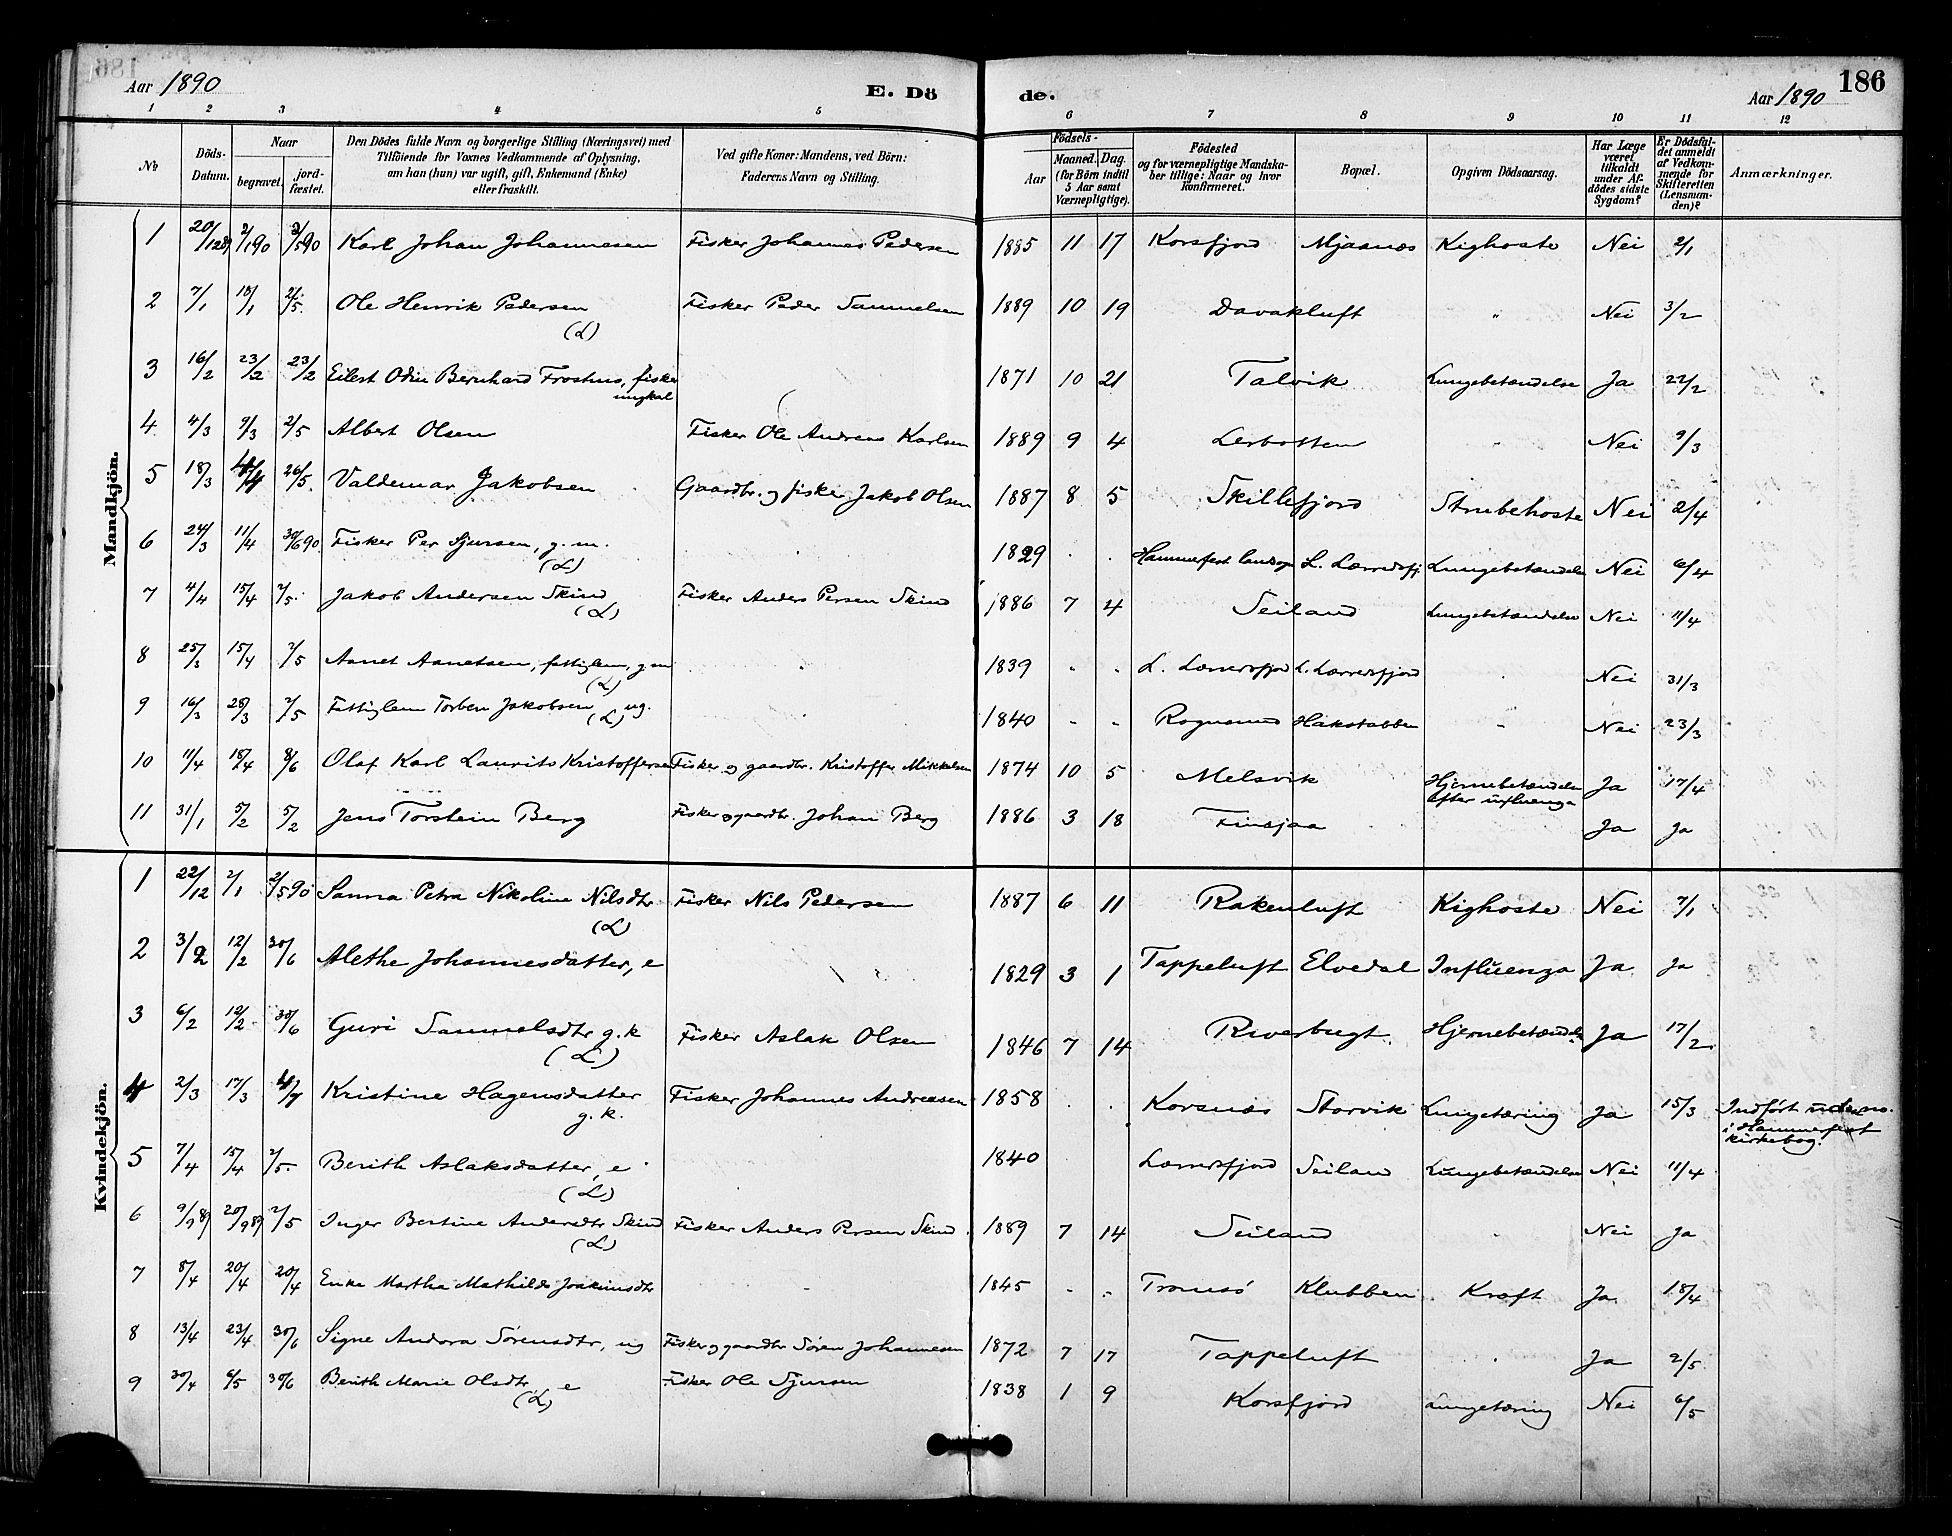 Aar 1890 E. Döde. Aar 1890 186
1 2 3 4 5 6 7 8 9 10 11 12
No Döds-Datum. Naar begravet. jordfæstet. Den Dödes fulde Navn og borgerlige Stilling (Næringsvei) med Tilföiende for Voxnes Vedkommende af Oplysning, om han (hun) var ugift, gift, Enkemand (Enke) eller fraskilt. Ved gifte Koner: Mandens, ved Börn: Faderens Navn og Stilling. Födsels- Aar Maaned. Dag. (for Börn indtil 5 Aar samt Værnepligtige). Födested og for værnepligtige Mandskaber tillige: Naar og hvor konfirmeret. Bopæl. Opgiven Dödsaarsag. Har Læge været tilkaldt under Afdödes sidste Sygdom? Er Dödsfaldet anmeldt af Vedkommende for Skifteretten (Lensmanden)? Anmærkninger.
Mandkjön.
1 20/12 89 2/1 90 2/5 90 Karl Johan Johannesen Fisker Johannes Pedersen 1885 11 17 Korsfjord Mjaanæs Kighoste Nei 2/1
2 7/1 18/1 2/5. Ole Henrik Pedersen (L) Fisker Peder Samuelsen 1889 10 19 Davakluft " Nei 3/2
3 16/2 23/2 23/2 Eilert Odin Bernhard Frosthus, fisker ungkal 1871 10 21 Talvik Lungebetændelse Ja 22/2
4. 4/3 9/3 2/5 Albert Olsen Fisker Ole Andreas Karlsen 1889 9 4 Lerbotten " Nei 9/3
5 18/3 4/4 26/5. Valdemar Jakobsen Gaardbr. og fisker Jakob Olsen 1887 8 5 Skillefjord Strubehoste Nei 2/4
6 24/3 11/4 30/6 90. Fisker Per Sjursen, g. m. (L) 1829 . . Hammerfest landsogn L. Lerredsfj. Lungebetændelse Nei 6/4
7 4/4 15/4 2/5. Jakob Andersen Skind (L) Fisker Anders Persen Skind 1886 7 4 Seiland Lungebetændelse Nei 11/4
8 25/3 15/4 2/5 Asnet Asnetsen, fattiglem, g m (L) 1839 " " L. Lerrersfjord L. Lerrersfjord . Nei 31/3
9 16/3 28/3 2/5 Fattiglem Torben Jakobsen, ug. (L) 1840 - - Rognsund Hakstabben " Nei 23/3
10 11/4 18/4 8/6 Olaf Karl Laurits Kristoffersen Fisker og gaardbr. Kristoffer Mikkelsen 1874 10 5 Melsvik Hjernebetændelse efter influenza Ja 17/4
11 31/1 5/2 5/2 Jens Torstein Berg Fisker og gaardbr. Johan Berg 1886 3 18 Finsjaa Ja Ja
Kvindekjön.
1 22/12 2/1 2/5 90 Sanna Petra Nikoline Nilsdtr. (L) Fisker Nils Pedersen 1887 6 11 Rakenluft Kighoste Nei 7/1
2 3/2 12/2 30/6 Alethe Johannesdatter, e 1829 3 1 Tappeluft Elvedal Influenza Ja Ja
3 6/2 12/2. 30/6 Guri Samuelsdtr g. k (L) Fisker Aslak Olsen 1846 7 14 Riverbugt. Hjernebetændelse Ja 17/2
4 2/3 17/3 4/7 Kristine Hagensdatter g. k. Fisker Johannes Andreasen 1858 . . Korsnæs Storvik Lungetæring Ja 15/3 Indført uden no. i Hammerfest kirkebog.
5 7/4 15/4 2/5. Berith Aslaksdatter, e (L) 1840 Lerresfjord Seiland Lungebetændelse Nei 11/4
6 9/9 89 20/9 89 2/5 Inger Bertine Andersdtr Skind (L) Fisker Anders Persen Skind. 1889 7 14 Seiland " Nei Ja
7 8/4 20/4 20/4 Enke Martha Mathilde Joakimsdtr 1845 - - Tromsö Klubben Kræft Ja 18/4
8 13/4 23/4 30/6 Signe Andora Sørensdtr, ug Fisker og gaardbr Søren Johannesen 1872 7 17 Tappeluft " Ja 2/5
9 30/4 6/5 30/6 Berith Marie Olsdtr e (L) Fisker Ole Sjursen 1838 1 9 Korsfjord Lungetæring Nei 6/5